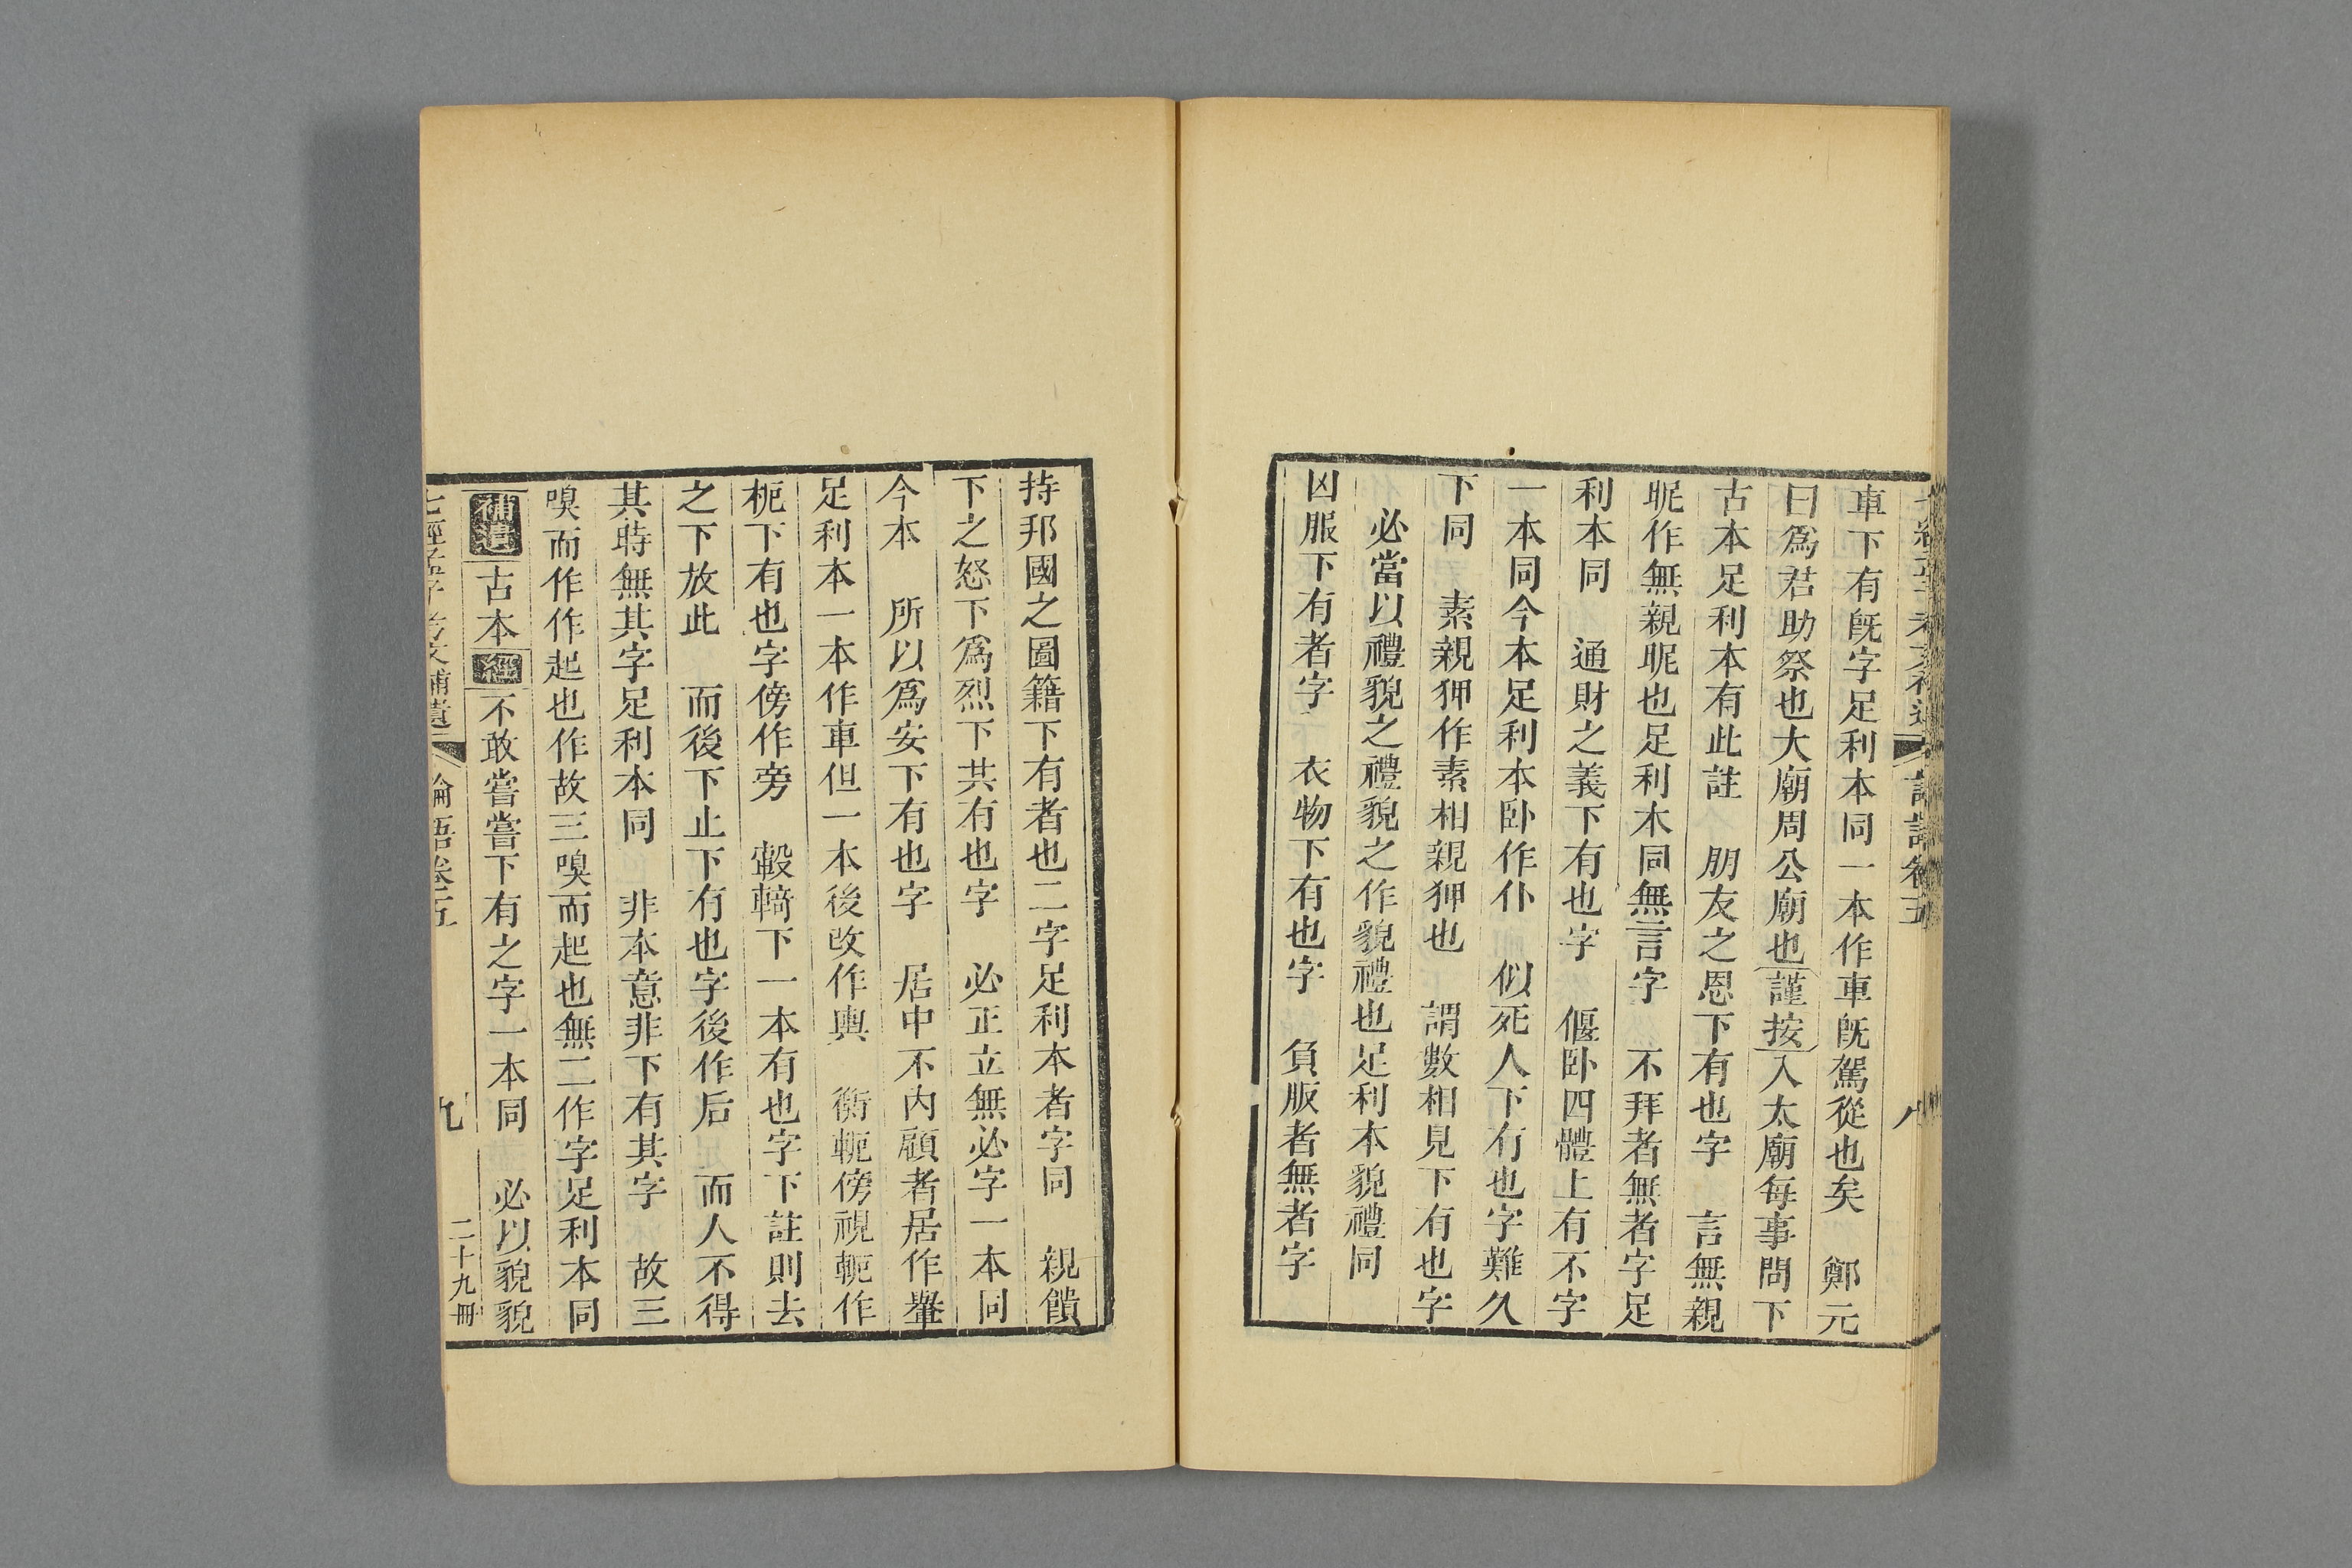 車下有旣字足利本同一本作車旣駕從也矣　鄭元
曰爲君助祭也大廟周公廟也謹按入太廟每事問下
古本足利本有此註　朋友之恩下有也字　言無親
昵作無親昵也足利木同無言字　不拜者無者字足
利本同　通財之義下有也字　偃卧四體上有不字
一本同今本足利本卧作仆　似死人下有也字難久
下同　素親狎作素相親狎也　謂數相見下有也字
必當以禮貌之禮貌之作貌禮也足利本貌禮同
凶服下有者字　衣物下有也字　負版者無者字
持邦國之圖籍下有者也二字足利本者字同　親饋
下之怒下爲烈下共有也字　必正立無必字一本同
今本　所以爲安下有也字　居中不内顧者居作轝
足利本一本作車但一本後改作輿　衡軛傍視軛作
枙下有也字傍作旁　轂輢下一本有也字下註則去
之下放此　而後下止下有也字後作后　而人不得
其時無其字足利本同　非本意非下有其字　故三
嗅而作作起也作故三嗅而起也無二作字足利本同
補遺　古本經不敢嘗嘗下有之字一本同　必以貌貌
七經孟子考文補遺　論語卷五　九　二十九冊